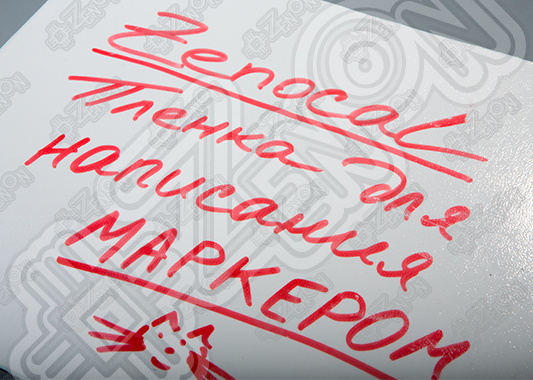 Zenocal
Пленка для
написания
МАРКЕРОМ